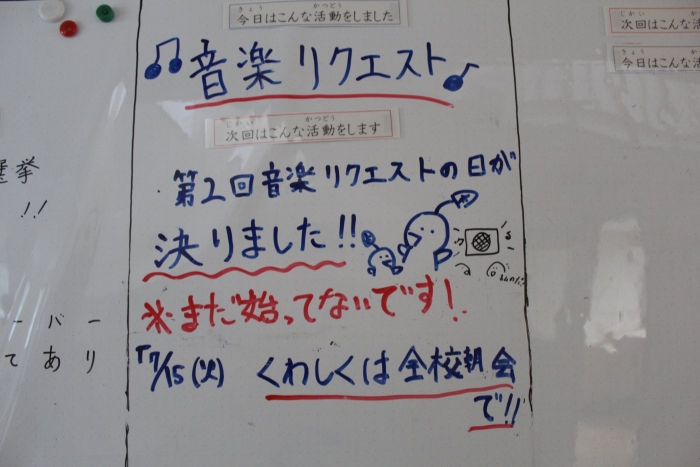 きょう かつどう
今日はこんな活動をしました
音楽リクエスト
かつどう
次回はこんな活動をします
第2回音楽リクエストの日が
決りました!!
※まだ始ってないです!
7/15(火) くわしくは全校朝会
で!!
挙
!!
ーバー
てあり
じかい
次回はこんな活
きょう
今日はこんな活